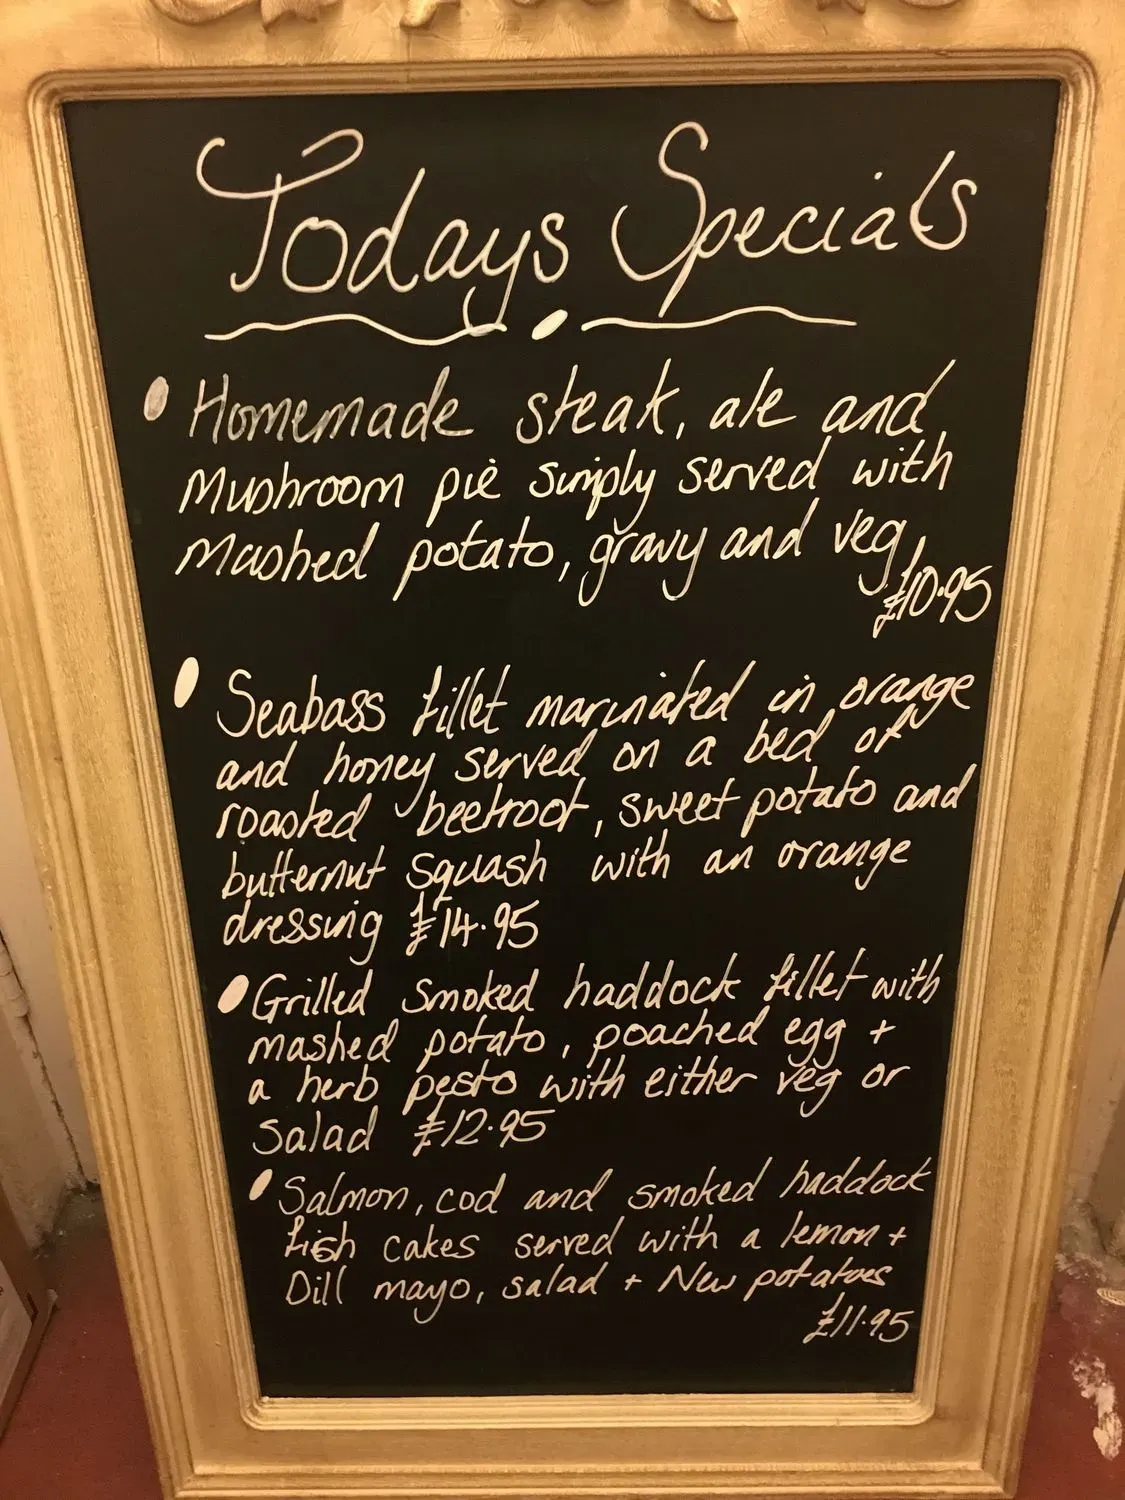 Todays Specials
Homemade steak, ale and
Mushroom pie simply served with
Mashed potato, gravy and veg,
£10.95
Seabass fillet marinated in orange
and honey served on a bed of
roasted beetroot, sweet potato and
butternut squash with an orange
dressing £14.95
Grilled smoked haddock fillet with
mashed potato, poached egg +
a herb pesto with either veg or
salad £12.95
Salmon, cod and smoked haddock
fish cakes served with a lemon +
Dill mayo, salad + New potatoes
£11.95